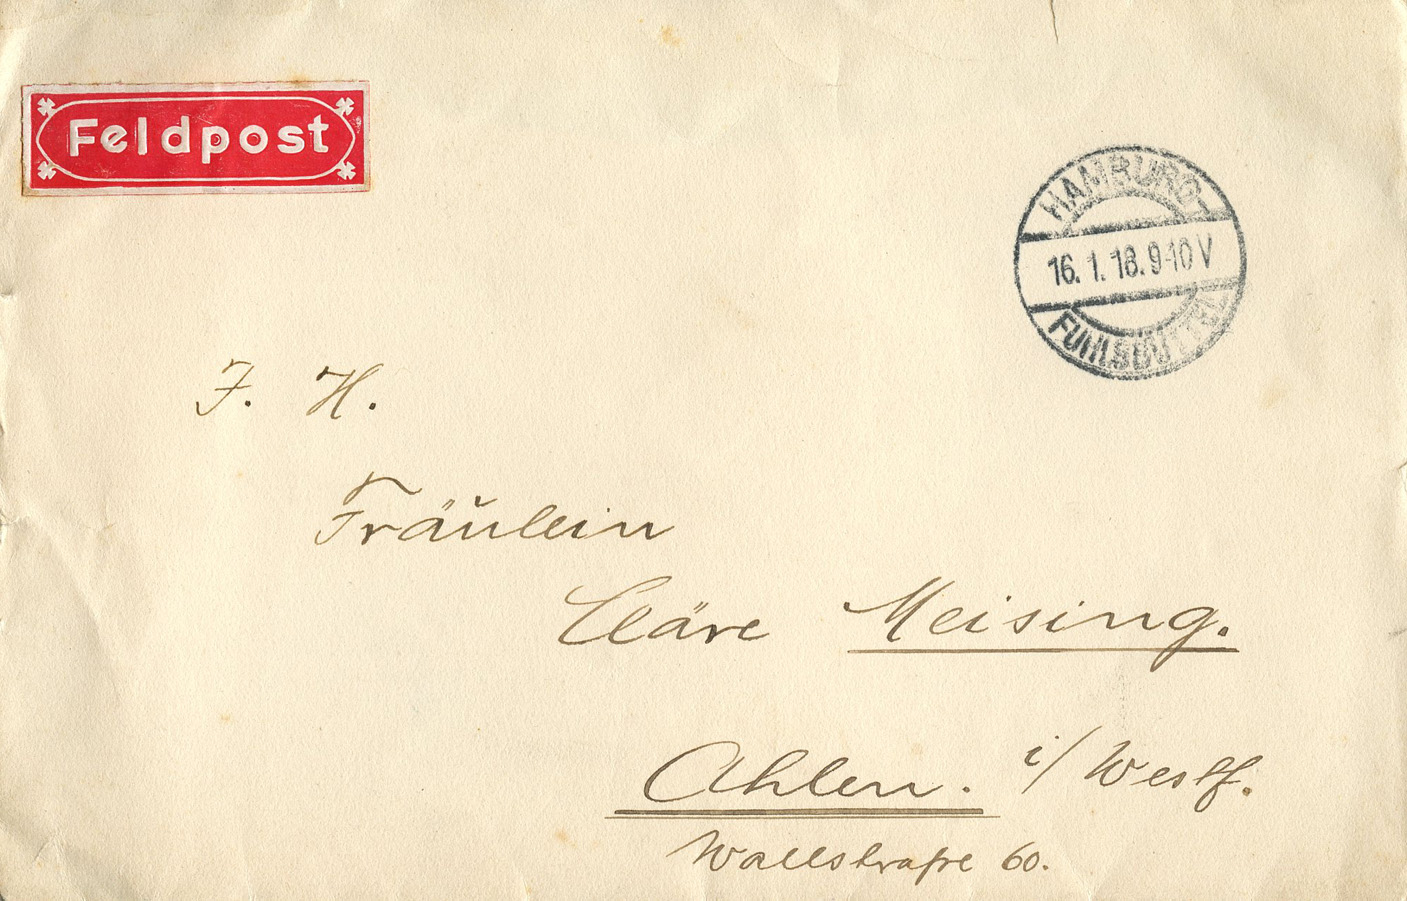 Feldpost
HAMBURG-
16.1.18.9-10V
FUHLSBÜTTEL
F. H.
Fräulein
Cläre Meising.
Ahlen. i/Westf.
Wallstraße 60.